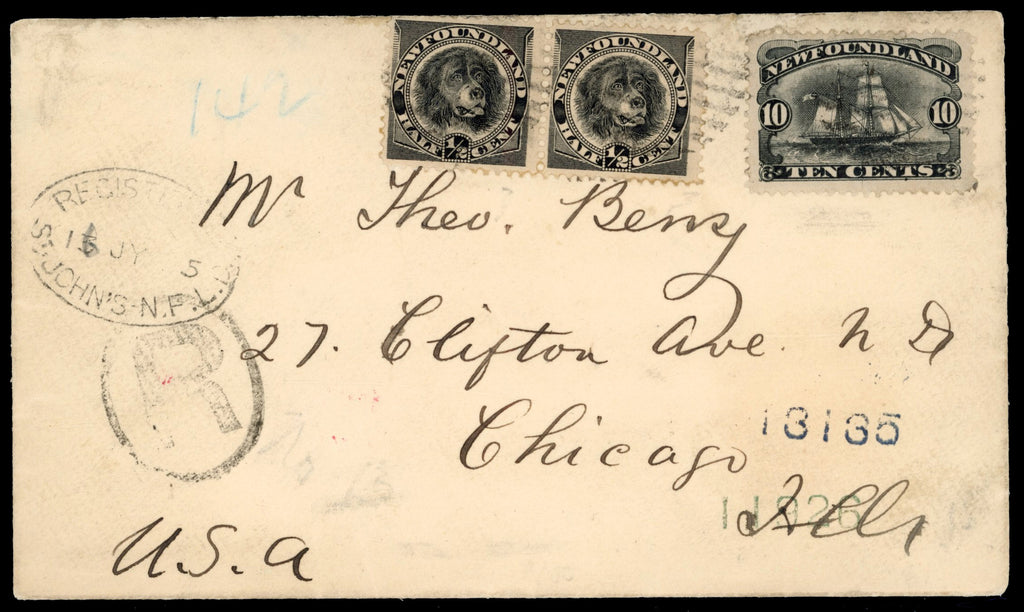 NEWFOUNDLAND
½
HALF CENT
NEWFOUNDLAND
½
HALF CENT
NEWFOUNDLAND
10 10
TEN CENTS
142
REGIST
15 JY 5
ST. JOHN'S-N.F.L.D
R
Mr Theo. Benz
27. Clifton Ave.
Chicago
13135
11926
Ills
U.S.A